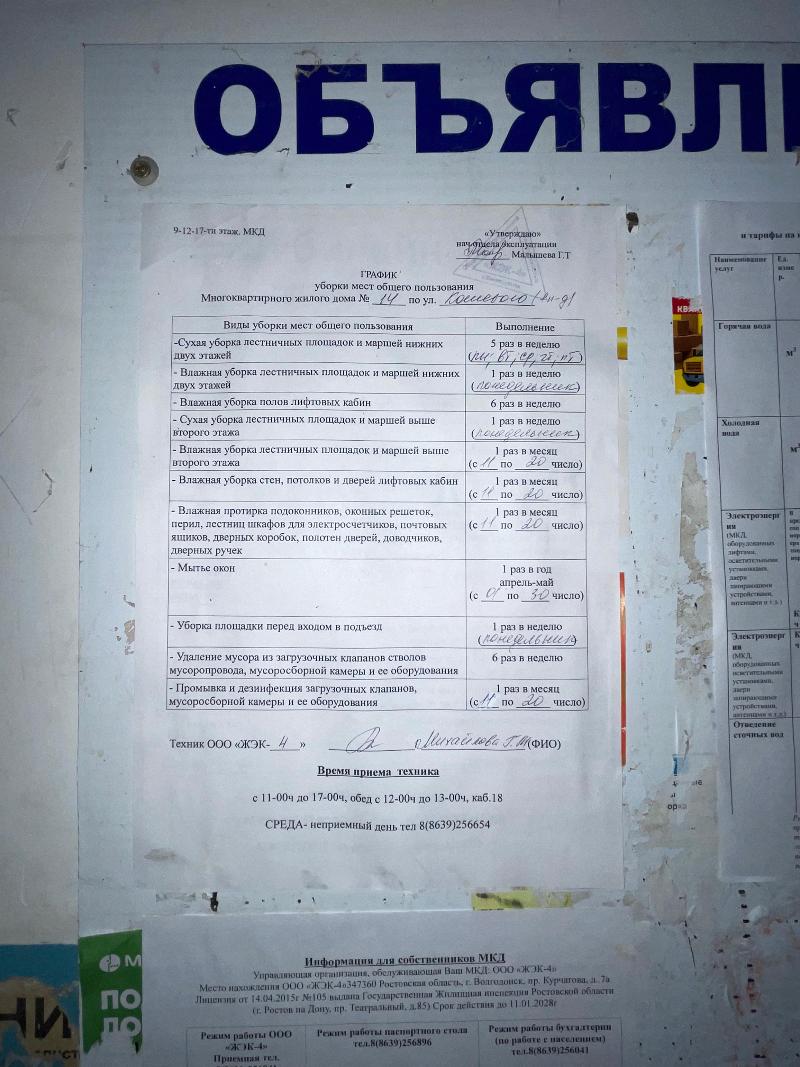 ОБЪЯВЛ
9-12-17-ти этаж. МКД
«Утверждаю»
нач.отдела эксплуатации
Малышева Г.Т
ГРАФИК
уборки мест общего пользования
Многоквартирного жилого дома № 14 по ул. Кошевого
Виды уборки мест общего пользования
Выполнение
-Сухая уборка лестничных площадок и маршей нижних
двух этажей
5 раз в неделю
(пн, вт, ср, чт, пт)
- Влажная уборка лестничных площадок и маршей нижних
двух этажей
1 раз в неделю
(понедельник)
- Влажная уборка полов лифтовых кабин
6 раз в неделю
- Сухая уборка лестничных площадок и маршей выше
второго этажа
1 раз в неделю
(понедельник)
- Влажная уборка лестничных площадок и маршей выше
второго этажа
1 раз в месяц
(с 11 по 20 число)
- Влажная уборка стен, потолков и дверей лифтовых кабин
1 раз в месяц
(с 11 по 20 число)
- Влажная протирка подоконников, оконных решеток,
перил, лестниц шкафов для электросчетчиков, почтовых
ящиков, дверных коробок, полотен дверей, доводчиков,
дверных ручек
1 раз в месяц
(с 11 по 20 число)
- Мытье окон
1 раз в год
апрель-май
(с 01 по 30 число)
- Уборка площадки перед входом в подъезд
1 раз в неделю
(понедельник)
- Удаление мусора из загрузочных клапанов стволов
мусоропровода, мусоросборной камеры и ее оборудования
6 раз в неделю
- Промывка и дезинфекция загрузочных клапанов,
мусоросборной камеры и ее оборудования
1 раз в месяц
(с 11 по 20 число)
Техник ООО «ЖЭК- 4 » (Михайлова Г.М (ФИО)
Время приема техника
с 11-00ч до 17-00ч, обед с 12-00ч до 13-00ч, каб.18
СРЕДА- неприемный день тел 8(8639)256654
Информация для собственников МКД
Управляющая организация, обслуживающая Ваш МКД: ООО «ЖЭК-4»
Место нахождения ООО «ЖЭК-4»347360 Ростовская область, г. Волгодонск, пр. Курчатова, д.7а
Лицензия от 14.04.2015г №105 выдана Государственная Жилищная инспекция Ростовской области
(г. Ростов на Дону, пр. Театральный, д.85) Срок действия до 11.01.2028г
Режим работы ООО
«ЖЭК-4»
Приемная тел.
Режим работы паспортного стола
тел.8(8639)256896
Режим работы бухгалтерии
(по работе с населением)
тел.8(8639)256041
и тарифы на
Наименование
услуг
Ед.
изме
р.
Горячая вода
м³
Холодная
вода
м³
Электроэнерг
ия
(МКД,
оборудованных
лифтами,
осветительными
установками,
двери
запирающими
устройствами,
антеннами и т.д.)
Электроэнерг
ия
(МКД,
оборудованных
осветительными
установками,
двери
запирающими
устройствами,
антеннами и т.д.)
Отведение
сточных вод
КВА
М
ПО
ЛО
НИ